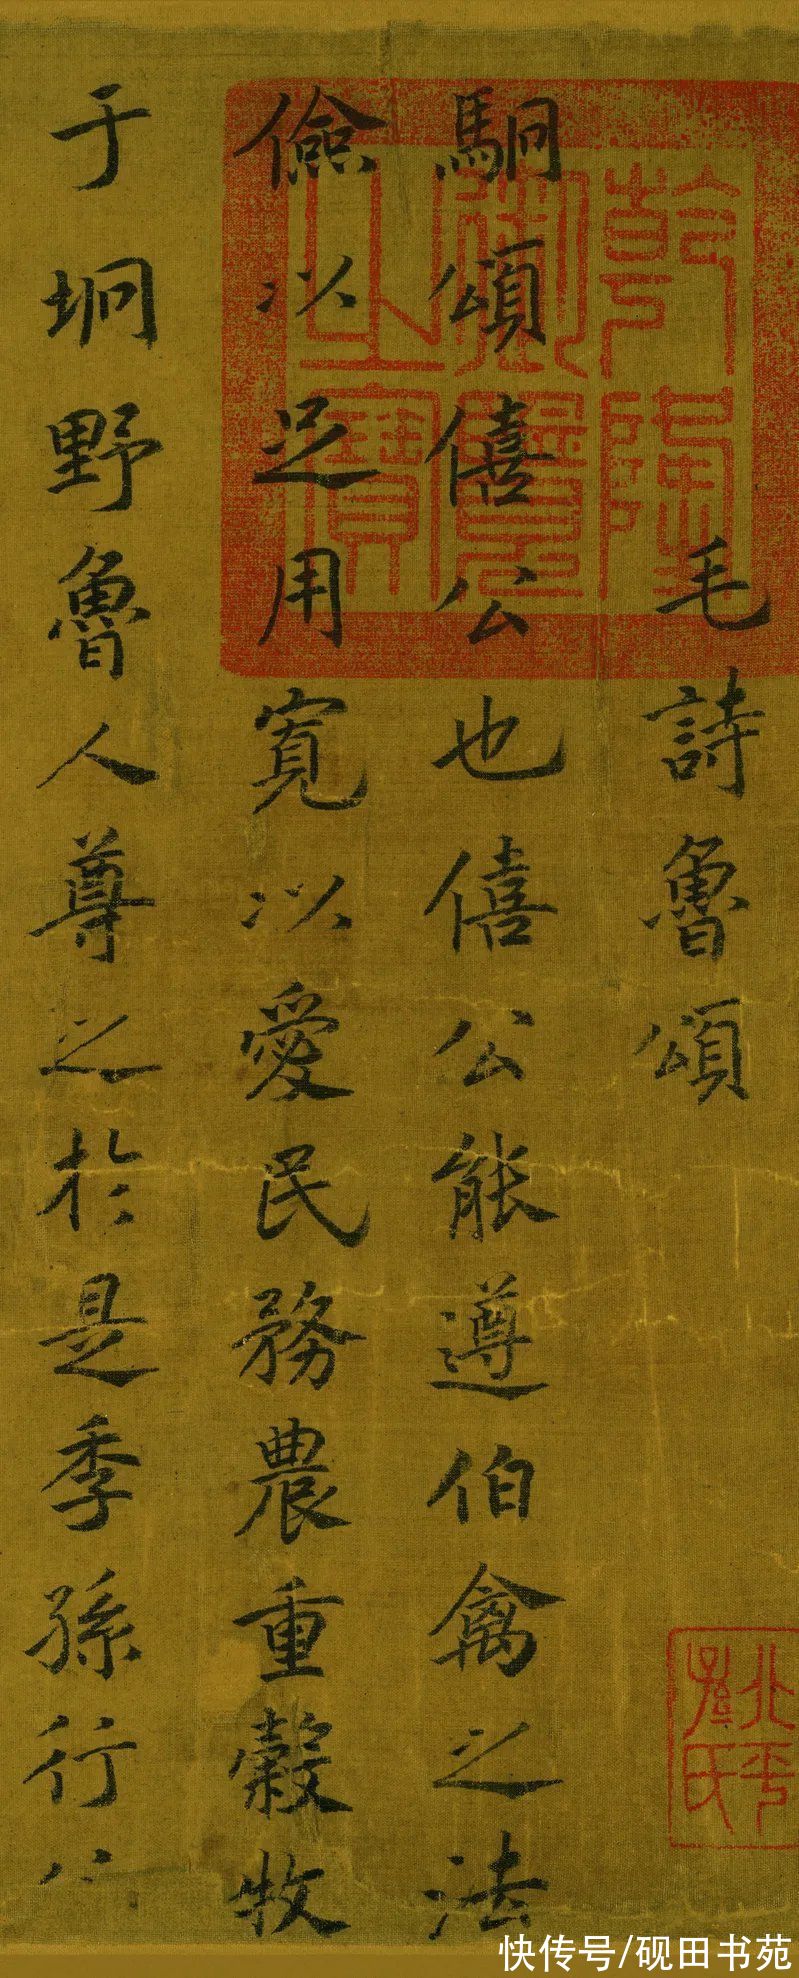 毛詩魯頌
駉頌僖公也僖公能遵伯禽之法
儉以足用寬以愛民務農重穀牧
于坰野魯人尊之於是季孫行
乾隆
御覽
之寶
北平
孫氏
快传号/砚田书苑